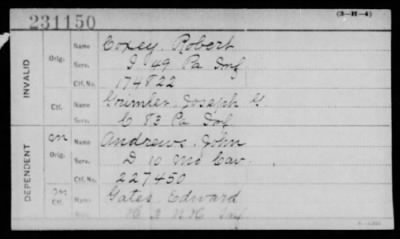 231150
(3-H-4)
INVALID
Orig.
Name Coxey, Robert
Serv. I 49 Pa Inf
Ctf. No. 174822
Ctf.
Name Grimler, Joseph G.
C 83 Pa Inf
DEPENDENT
Orig.
Name Andrews, John
Serv. D 10 Mo Cav.
Ctf. No. 227450
Ctf.
Name Gates, Edward
N H Inf